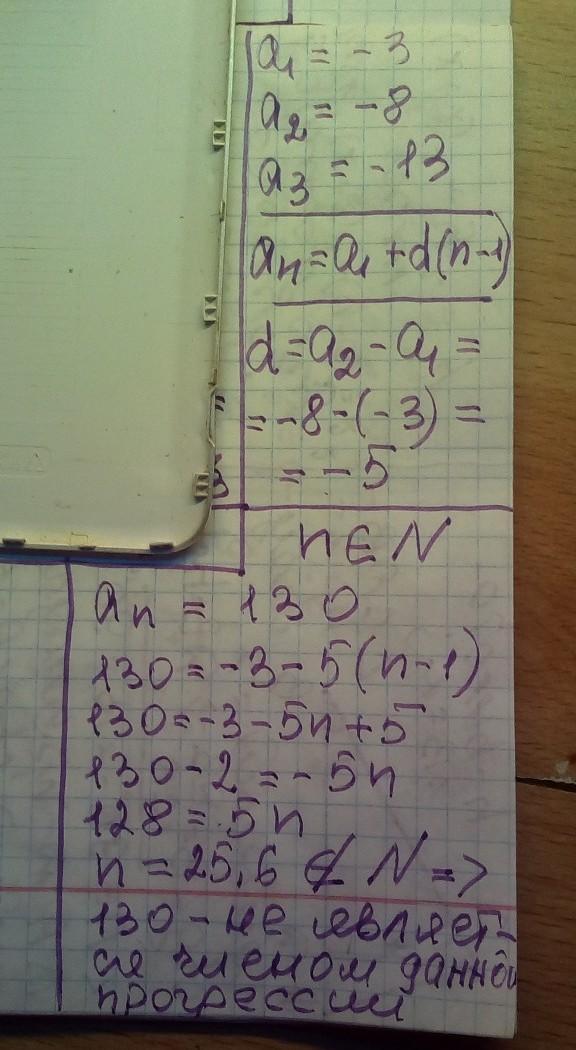 a₁ = -3
a₂ = -8
a₃ = -13
aₙ = a₁ + d(n-1)
d = a₂ - a₁ =
= -8 - (-3) =
= -5
n ∈ N
aₙ = 130
130 = -3 - 5(n-1)
130 = -3 - 5n + 5
130 - 2 = -5n
128 = 5n
n = 25,6 ∉ N =>
130 - не являет-
ся членом данной
прогрессии